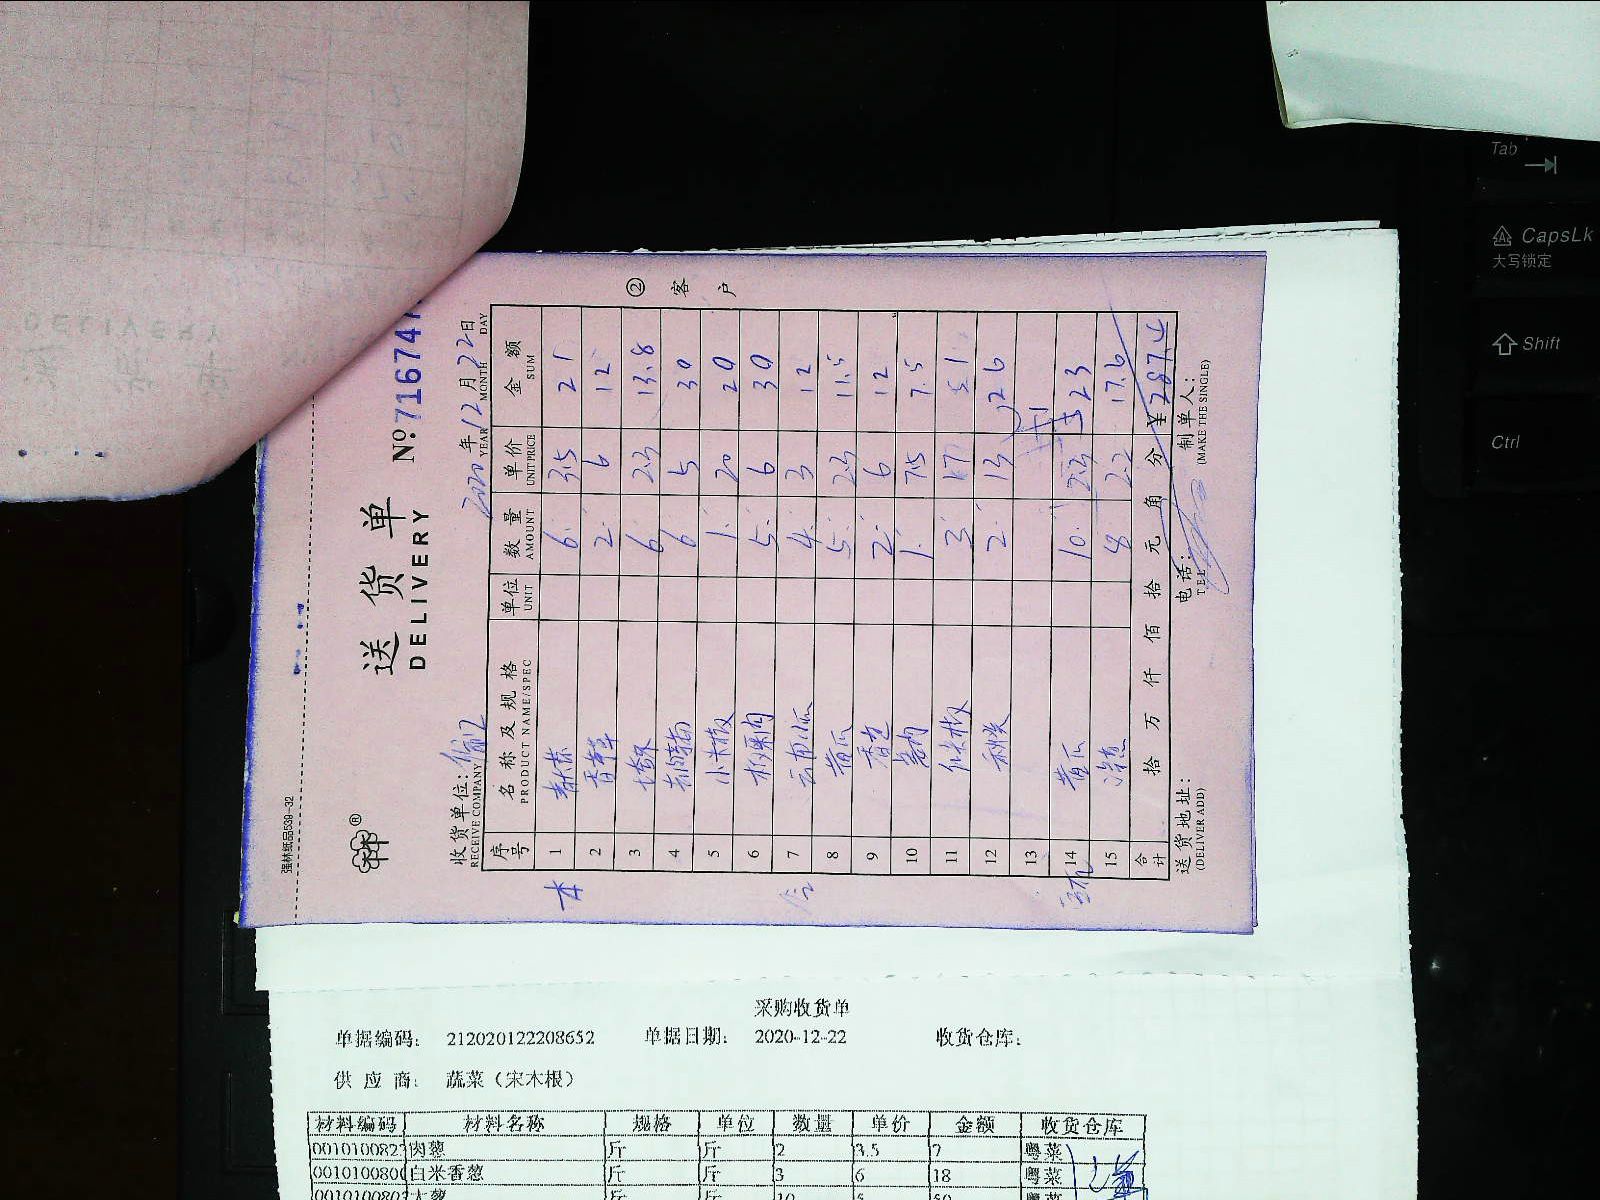 强林纸品539-32
送货单
DELIVERY
№:71674
2020年12月22日
YEAR MONTH DAY
收货单位:
RECEIVE COMPANY
② 客户
序号 名称及规格 单位 数量 单价 金额
PRODUCT NAME/SPEC UNIT AMOUNT UNIT PRICE SUM
1 6 3.5 21
2 香芹 2 6 12
3 6 2.3 13.8
4 6 5 30
5 小米椒 1 20 20
6 5 6 30
7 云南小瓜 4 3 12
8 黄瓜 5 2.3 11.5
9 香芋 2 6 12
10 1 7.5 7.5
11 3 17 51
12 秋葵 2 13 26
13
14 黄瓜 10 2.3 23
15 洋葱 8 2.2 17.6
合计 拾 万 仟 佰 拾 元 角 分 ¥287.4
送货地址: 电话: 制单人:
(DELIVER ADD) TEL (MAKE THE SINGLE)
采购收货单
单据编码: 212020122208652 单据日期: 2020-12-22 收货仓库:
供应商: 蔬菜(宋木根)
材料编码 材料名称 规格 单位 数量 单价 金额 收货仓库
001010082 肉葱 斤 斤 2 3.5 7 粤菜
001010080 白米香葱 斤 斤 3 6 18 粤菜
大葱 斤 斤 10 5 50 粤菜
Tab
CapsLk
大写锁定
Shift
Ctrl